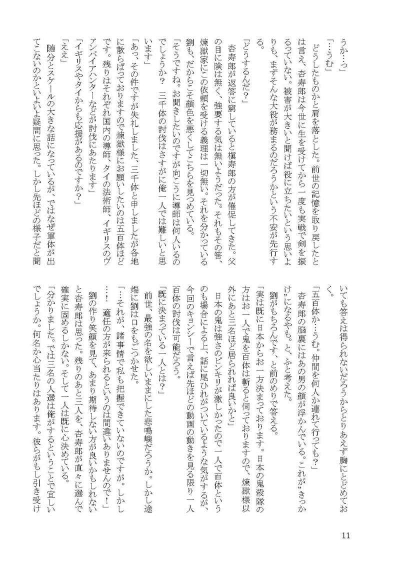 うか…っ」
「…うむ」
　どうしたものかと肩を落とした。前世の記憶を取り戻したと
は言え、杏寿郎は今世に生を受けてから一度も実戦で剣を振
るっていない。被害が大きいと聞けば役に立ちたいという思いよ
りも、まずそんな大役が務まるのだろうかという不安が先行す
る。
「どうするんだ？」
　杏寿郎が返答に窮していると槇寿郎の方が催促してきた。父
の目に険は無く、強要する気は無いようだった。それもその筈、
煉獄家にこの依頼を受ける義理は一切無い。それを分かっている
劉も、だからこそ顔色を悪くしてこちらを見つめている。
「そうですね。お聞きしたいのですが向こうに導師は何人いるの
でしょうか？　三千体の討伐はさすがに俺一人では難しいと思
います」
「あっ、その件ですが失礼しました、三千体と申しましたが各地
に散らばっておりますので煉獄様にお願いしたいのは五百体ほど
です。残りはそれぞれ国内の導師、タイの法術師、イギリスのヴ
ァンパイアハンターなどが討伐にあたります」
「イギリスやタイからも応援があるのですか？」
「ええ」
　随分とスケールの大きな話になっているが、ではなぜ軍体が出
てこないのかといよいよ疑問に思った。しかし先ほどの様子だと聞
いても答えは得られないだろうからとりあえず胸にとどめてお
く。
「五百体か…うむ、仲間を何人か連れて行っても？」
　杏寿郎の脳裏にはあの男の顔が浮かんでいる。これが〝きっか
け〟になるやも。と、ふと考えた。
　劉が「もちろんです」と前のめりで答える。
「実は既に日本からお一方決まっております。日本の鬼殺隊の
方はお一人で鬼を百体は斬ると伺っておりますので、煉獄様以
外にあと三名ほど居られれば良いかと」
　日本の鬼は強さのピンキリが激しかったので一人で百体という
のも場合によるし、話に尾ひれがついているような気がするが、
今回のキョンシーで言えば先ほどの動画の動きを見る限り一人
百体の討伐は可能だろう。
「既に決まっている一人とは？」
　前世、最強の名を欲しいままにした悲鳴嶼だろうか。しかし途
端に劉は口をもごつかせた。
「…それが、諸事情で私も把握できていないのですが、しかし
…！　適任の方が来られるというのは間違いありませんので！」
　劉の作り笑顔を見て、あまり期待しない方が良いかもしれない
と杏寿郎は思った。残りのあと三人を、杏寿郎が直々に選んで
確実に固めるしかない。そして一人は既に心に決めている。
「分かりました。では三名の人選は俺がするということで宜しい
でしょうか。何名か心当たりはあります。彼らがもし引き受け
11